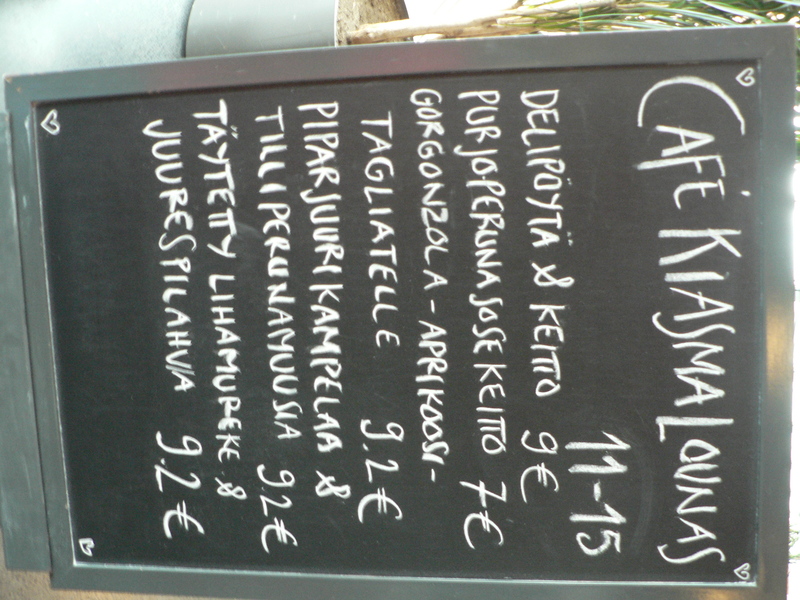 CAFÉ KIASMA LOUNAS
11-15
DELIPÖYTÄ & KEITTO 9€
PURJOPERUNASOSEKEITTO 7€
GORGONZOLA-APRIKOOSI-
TAGLIATELLE 9.2€
PIPARJUURIKAMPELAA &
TILLIPERUNAMUUSIA 9.2€
TÄYTETTY LIHAMUREKE &
JUURESPILAHVIA 9.2€